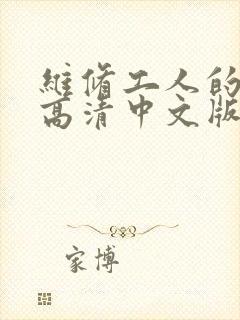 維脩工人的
高清中文版
家博